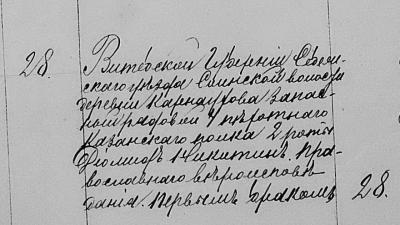 28. Витебской Губерніи Себеж-
скаго уѣзда Синской волости
деревни Карнаухова запас-
ной рядовой 4 пѣхотнаго
Казанскаго полка 2 роты
Діомидъ Никитинъ. Пра-
вославнаго вѣроисповѣ-
данія. Первымъ бракомъ 28.